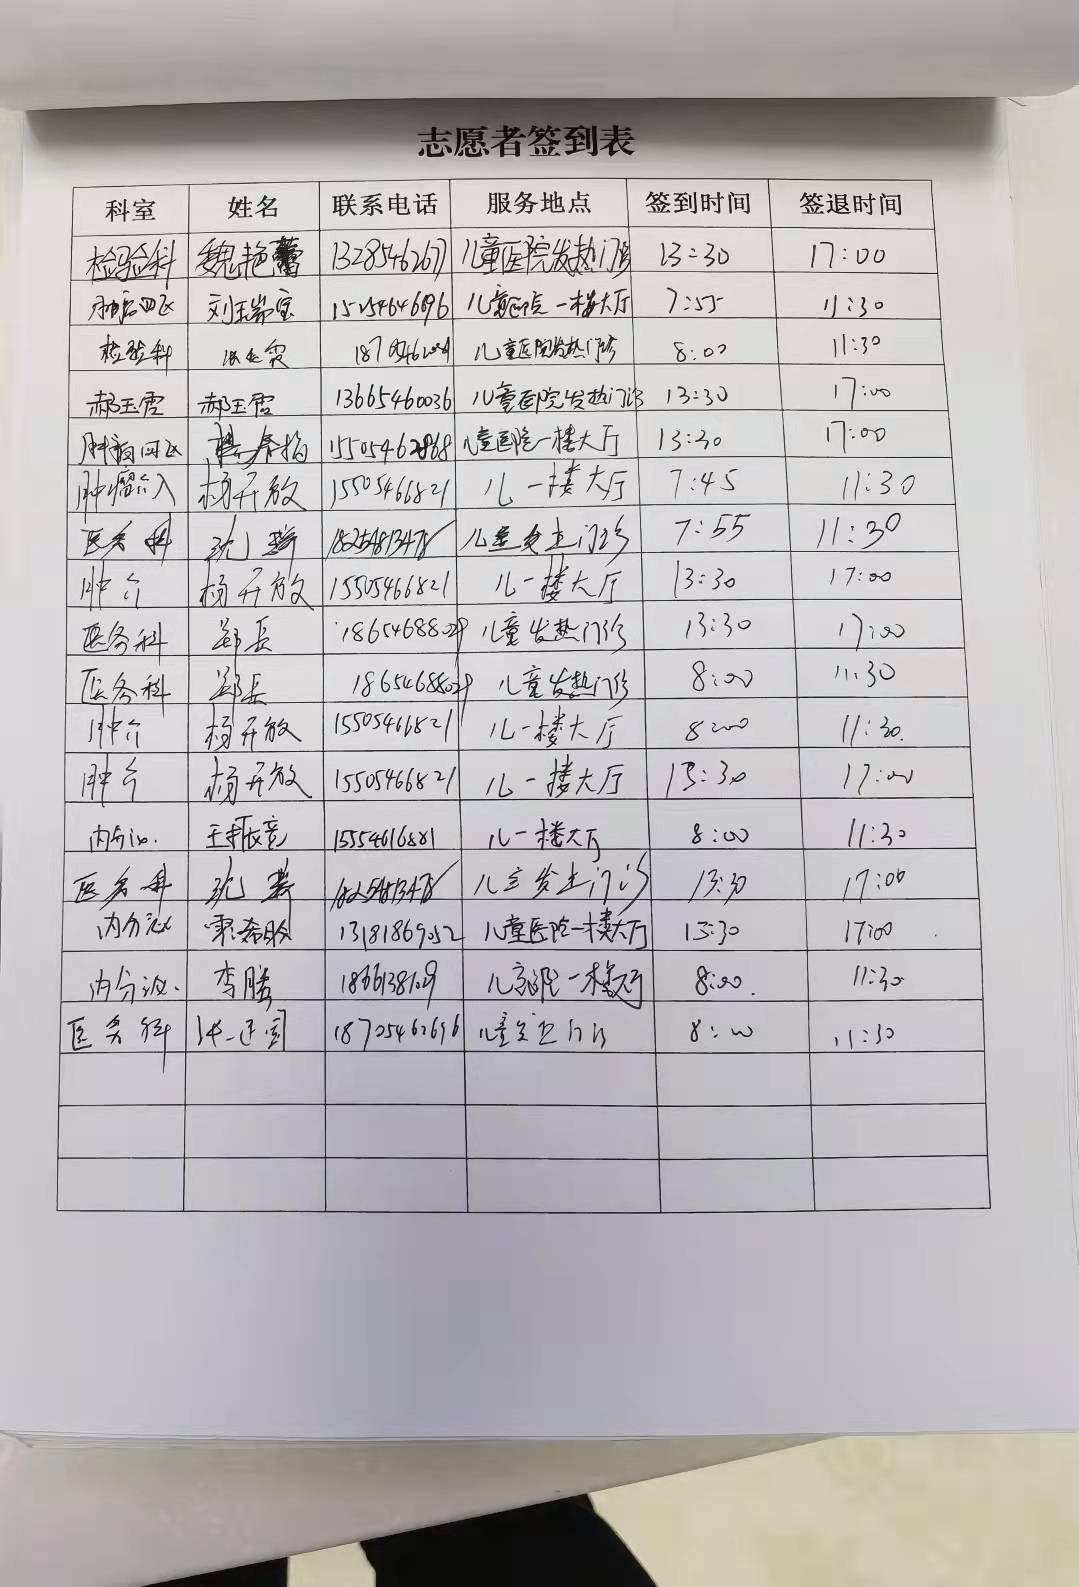 志愿者签到表
科室 姓名 联系电话 服务地点 签到时间 签退时间
检验科 魏艳蕾 13285462677 儿童医院发热门诊 13:30 17:00
刘玉瑞宝 儿童医院一楼大厅 7:55 11:30
检验科 儿童医院发热门诊 8:00 11:30
郝玉霞 郝玉霞 13665460036 儿童医院发热门诊 13:30 17:00
15505462868 儿童医院一楼大厅 13:30 17:00
肿瘤介入 杨开放 15505466821 儿一楼大厅 7:45 11:30
医务科 18254813478 7:55 11:30
肿介 杨开放 15505466821 儿一楼大厅 13:30 17:00
医务科 郑长 18654688029 儿童发热门诊 13:30 17:00
医务科 郑长 18654688029 儿童发热门诊 8:00 11:30
肿介 杨开放 15505466821 儿一楼大厅 8:00 11:30
肿介 杨开放 15505466821 儿一楼大厅 13:30 17:00
内分泌. 王振意 15554616881 儿一楼大厅 8:00 11:30
医务科 18254813478 13:30 17:00
内分泌 13181869052 儿童医院一楼大厅 13:30 17:00
内分泌. 李腾 8:00. 11:30
医务科 18705462696 8:00 11:30